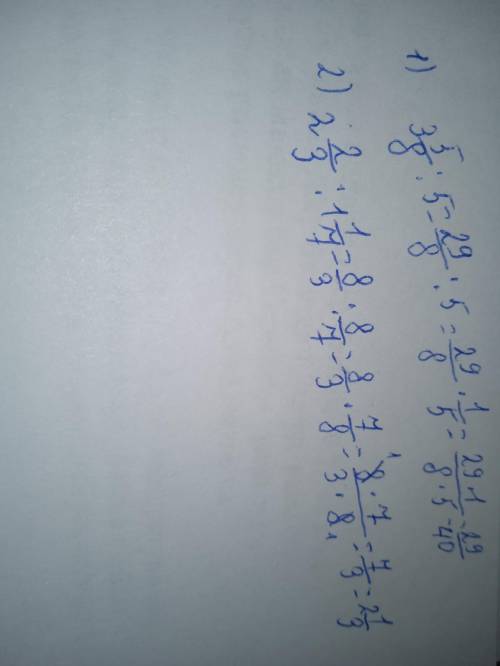 1) 3 5/8 : 5 = 29/8 : 5 = 29/8 · 1/5 = 29·1/8·5 = 29/40
2) 2 2/3 : 1 1/7 = 8/3 : 8/7 = 8/3 · 7/8 = 8·7/3·8 = 7/3 = 2 1/3